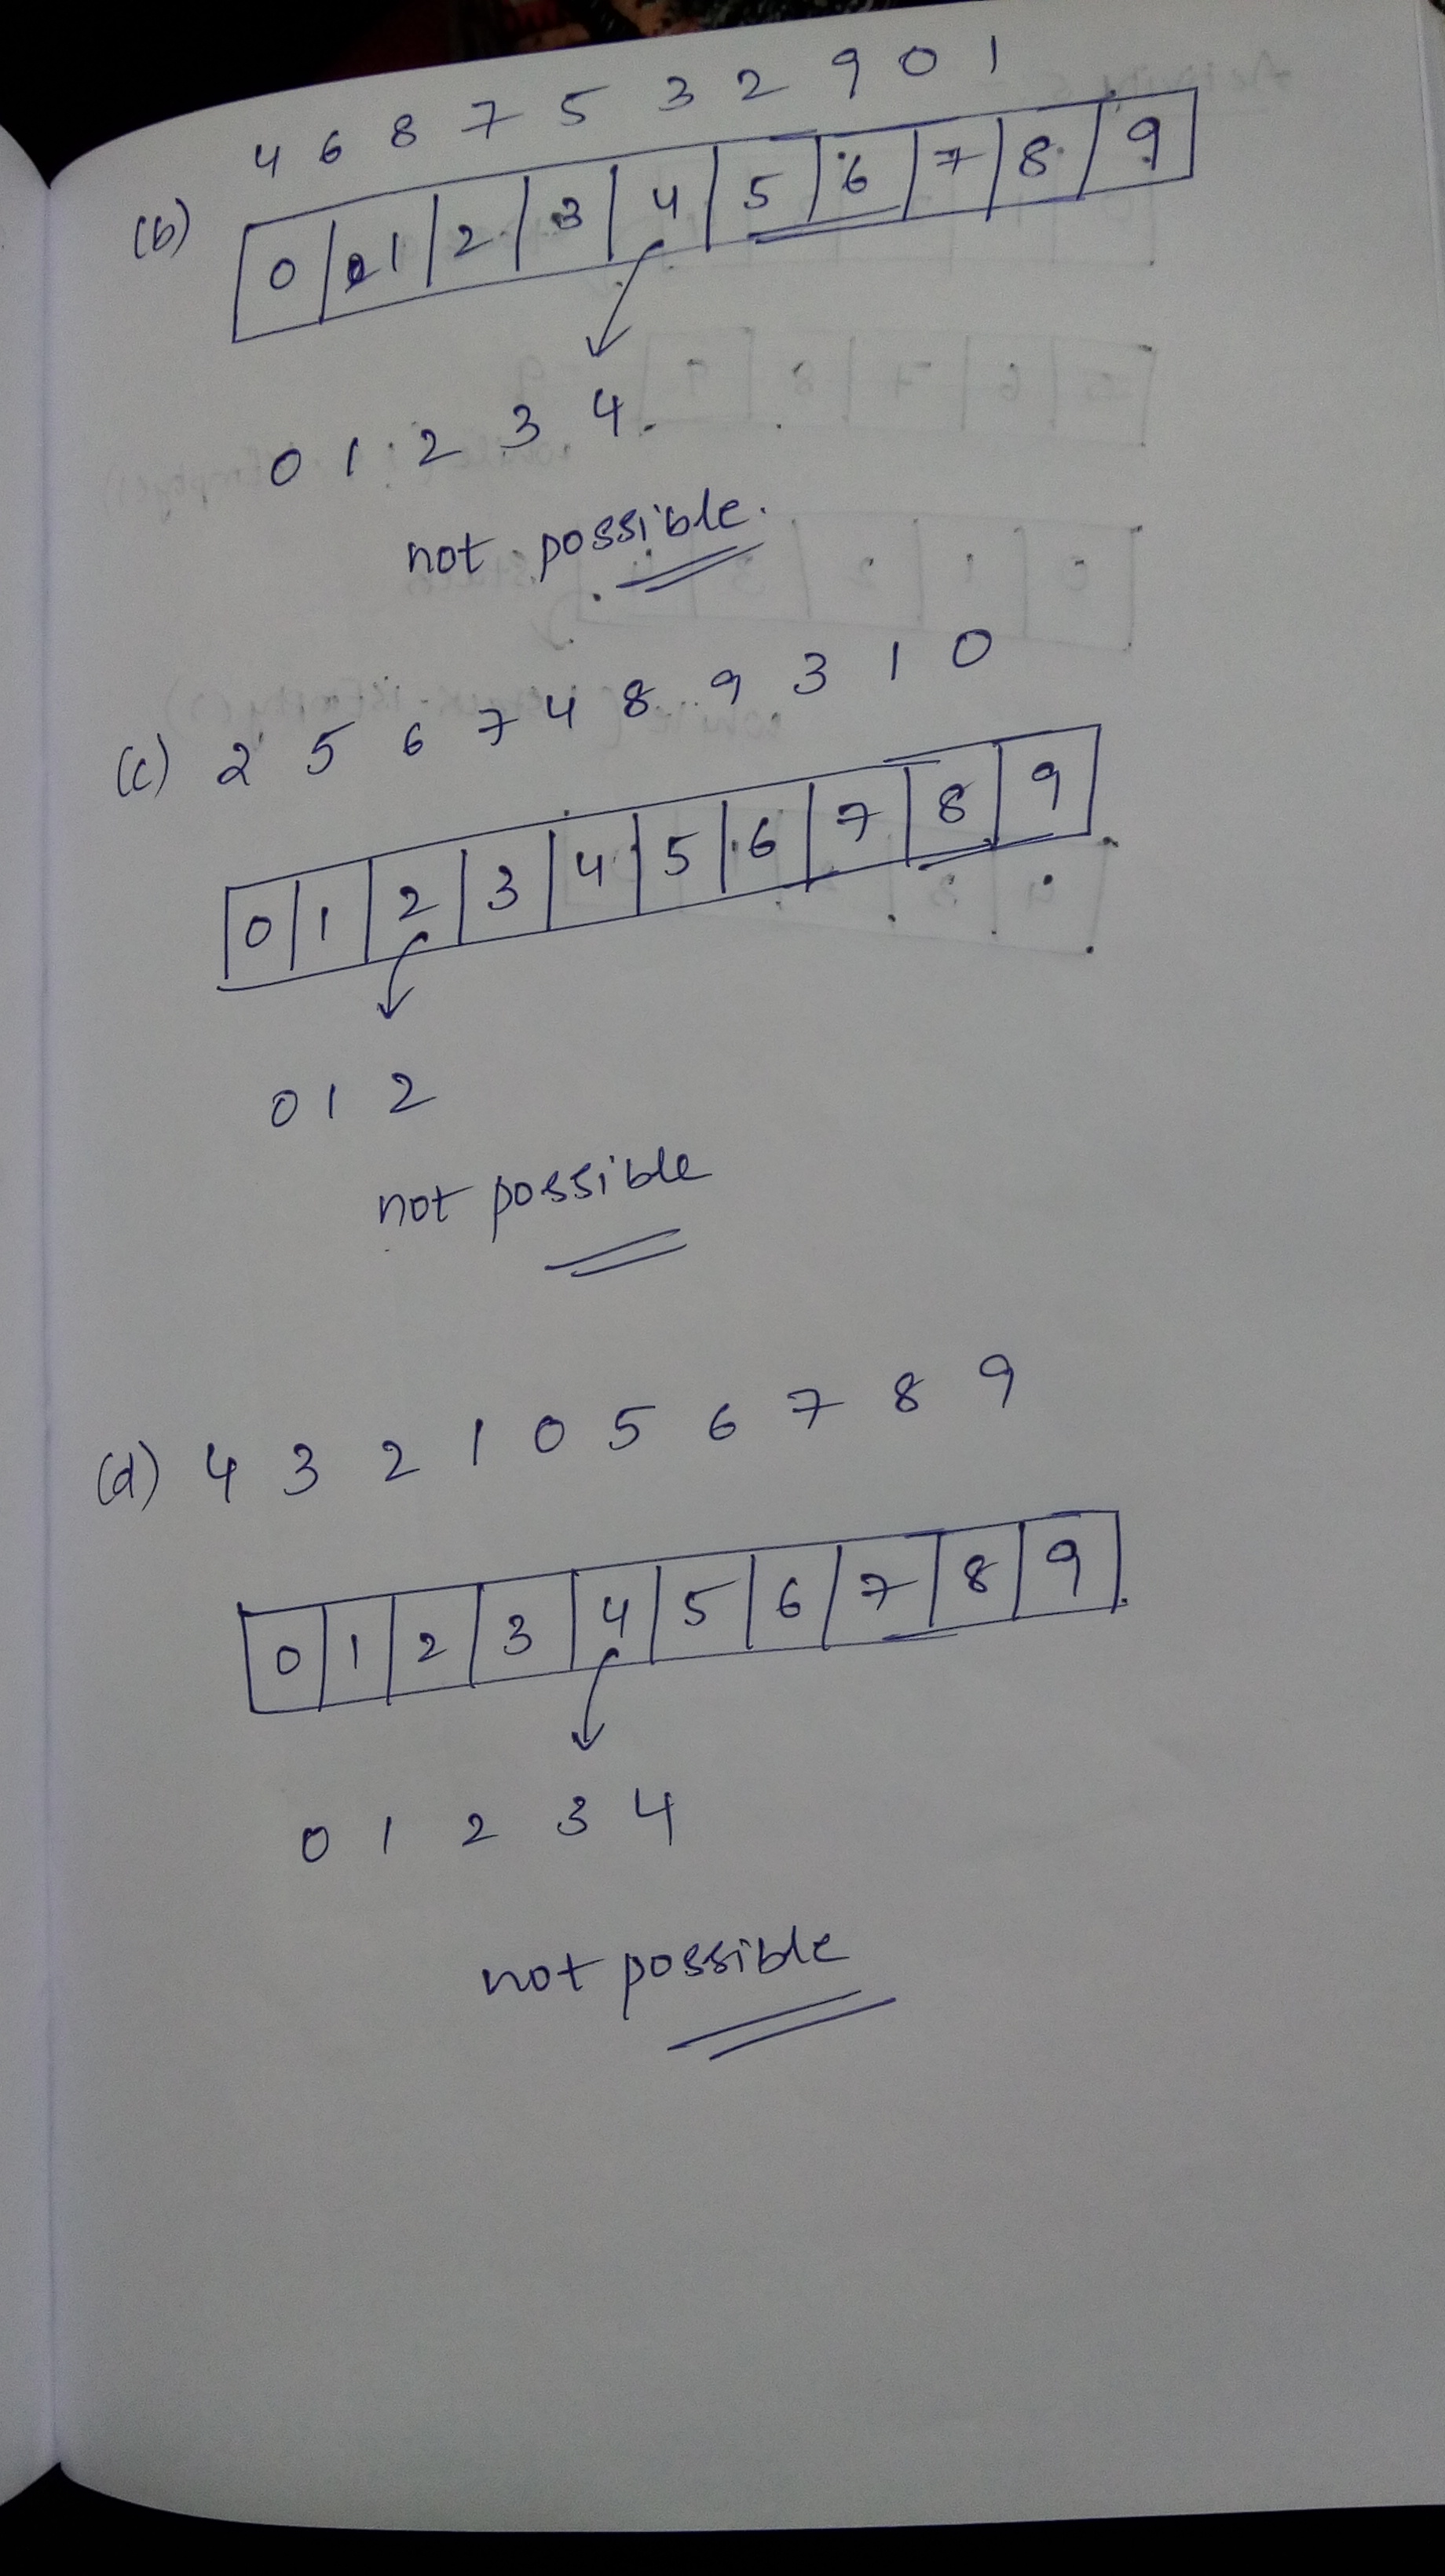 4 6 8 7 5 3 2 9 0 1
(b) 0 1 2 3 4 5 6 7 8 9
0 1 2 3 4.
not possible.
(c) 2 5 6 7 4 8 9 3 1 0
0 1 2 3 4 5 6 7 8 9
0 1 2
not possible
(d) 4 3 2 1 0 5 6 7 8 9
0 1 2 3 4 5 6 7 8 9
0 1 2 3 4
not possible